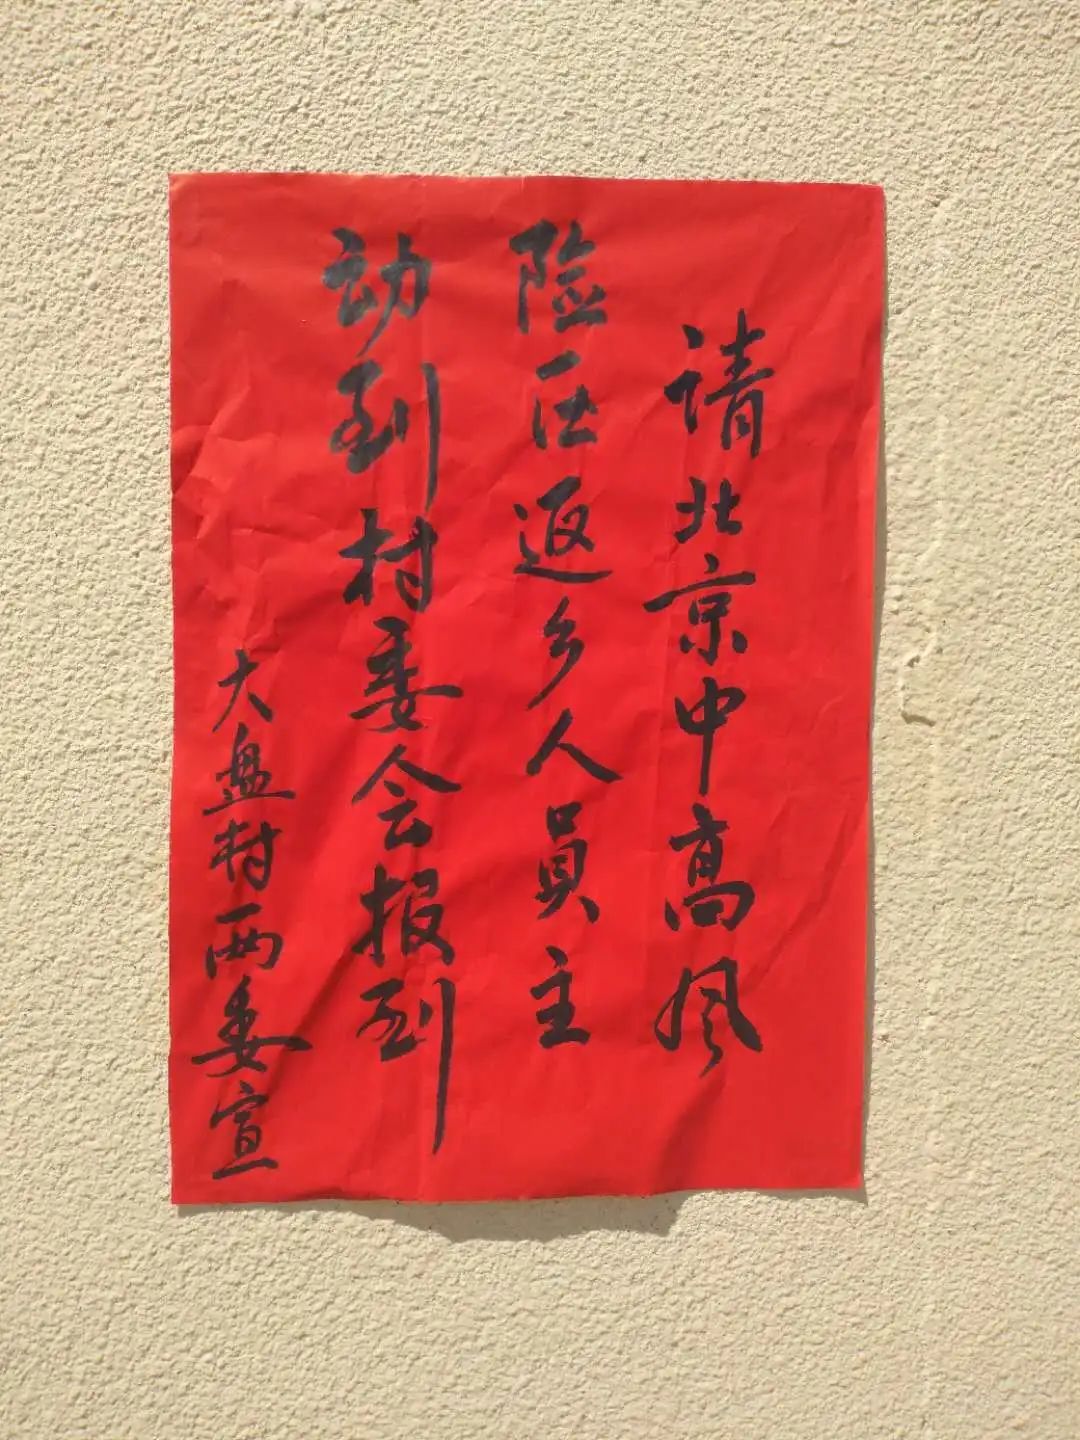 请北京中高风
险区返乡人员主
动到村委会报到
大盘村两委宣